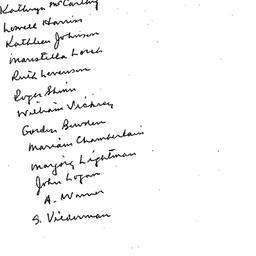 Kathryn McCarthy
Lowell Harriss
Kathleen Johnson
Maristella Lorch
Ruth Levenson
Roger Shinn
William Vickrey
Gordon Bowden
Mariam Chamberlain
Marjorie Lightman
John Logan
A. Warner
S. Viederman